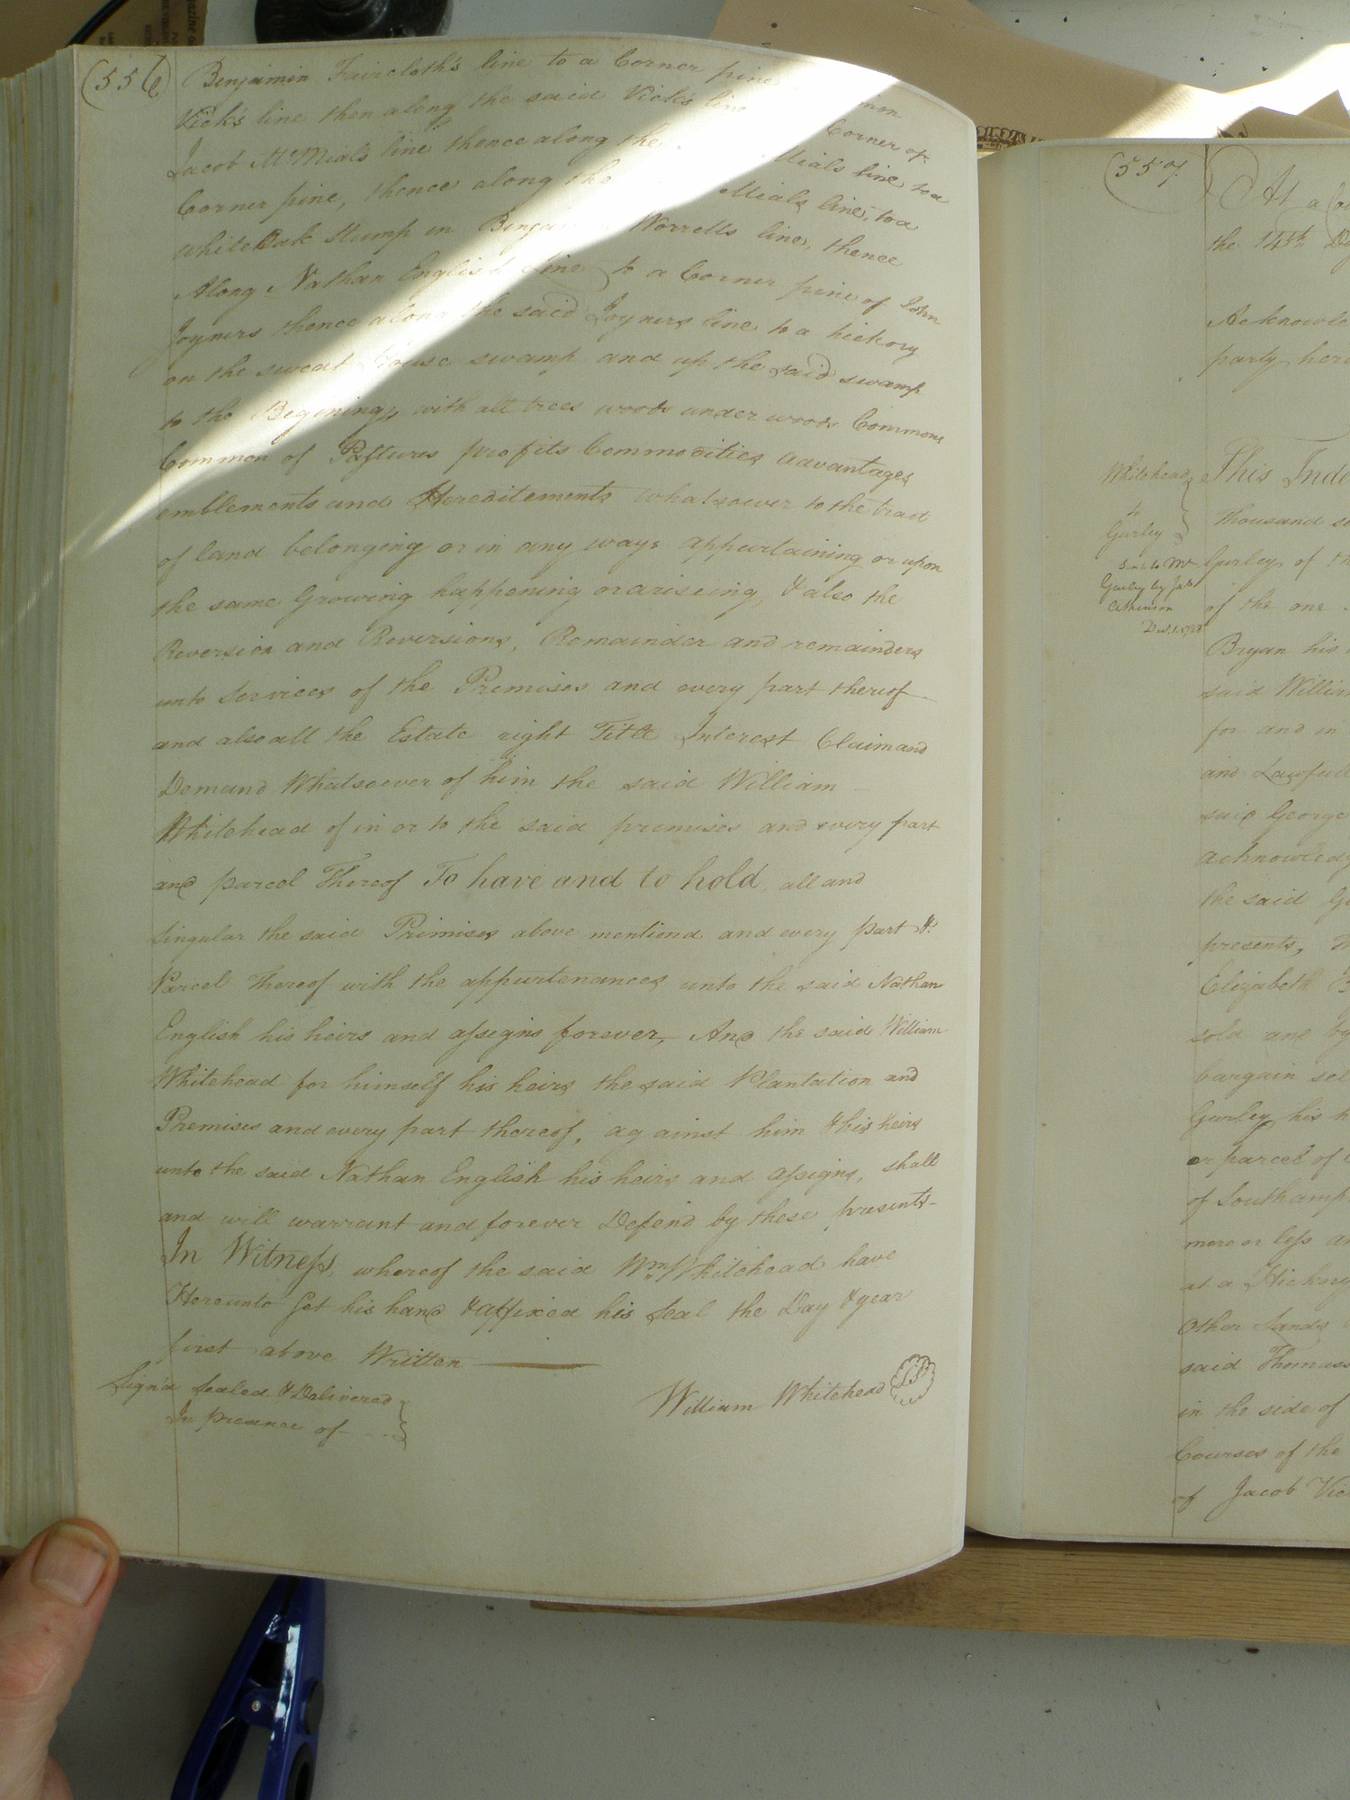 (556)
Benjamin Faircloth's line to a Corner pine
Vick's line then along the said Vick's line Corner of
Jacob McMials line thence along the Mials line to a
Corner pine, thence along the Mials line, to a
white Oak Stump in Worrells line, thence
Along Nathan English line to a Corner pine of John
Joyners thence along the said Joyners line to a hickory
on the sweat House swamp and up the said swamp
to the Begining, with all trees woods under woods Commons
Common of Pastures profits Commodities advantages
emblements and Hereditements whatsoever to the tract
of land belonging or in any ways appurtaining or upon
the same Growing happening or ariseing, & also the
Reversion and Reversions, Remainder and remainders
unto Services of the Premises and every part thereof
and also all the Estate right Title Interest Claim and
Demand Whatsoever of him the said William
Whitehead of in or to the said premises and every part
and parcel Thereof To have and to hold all and
Singular the said Primises above mentiond and every part &
Parcel Thereof with the appurtenances unto the said Nathan
English his heirs and assigns forever, And the said William
Whitehead for himself his heirs the said Plantation and
Premises and every part thereof, against him & his heirs
unto the said Nathan English his heirs and assigns, shall
and will warrant and forever Defend by these presents-
In Witness whereof the said Wm. Whitehead have
Hereunto Set his hand & affixed his Seal the Day & year
first above Written
Sign'd Sealed & Delivered
In presence of
William Whitehead LS
(557)
At a
the 14th
Acknowle
party here
Whitehead
Gurley
Gurley by
This Inde
thousand
Gurley of
of the one
Bryan his
said William
for and in
and Lawfull
said George
acknowledg
the said
presents,
Elizabeth
sold and
bargain sel
Gurley his
or parcel of
of Southamp
more or less
at a Hickory
Other Lands
said Thomas
in the side of
Courses of the
of Jacob Vic